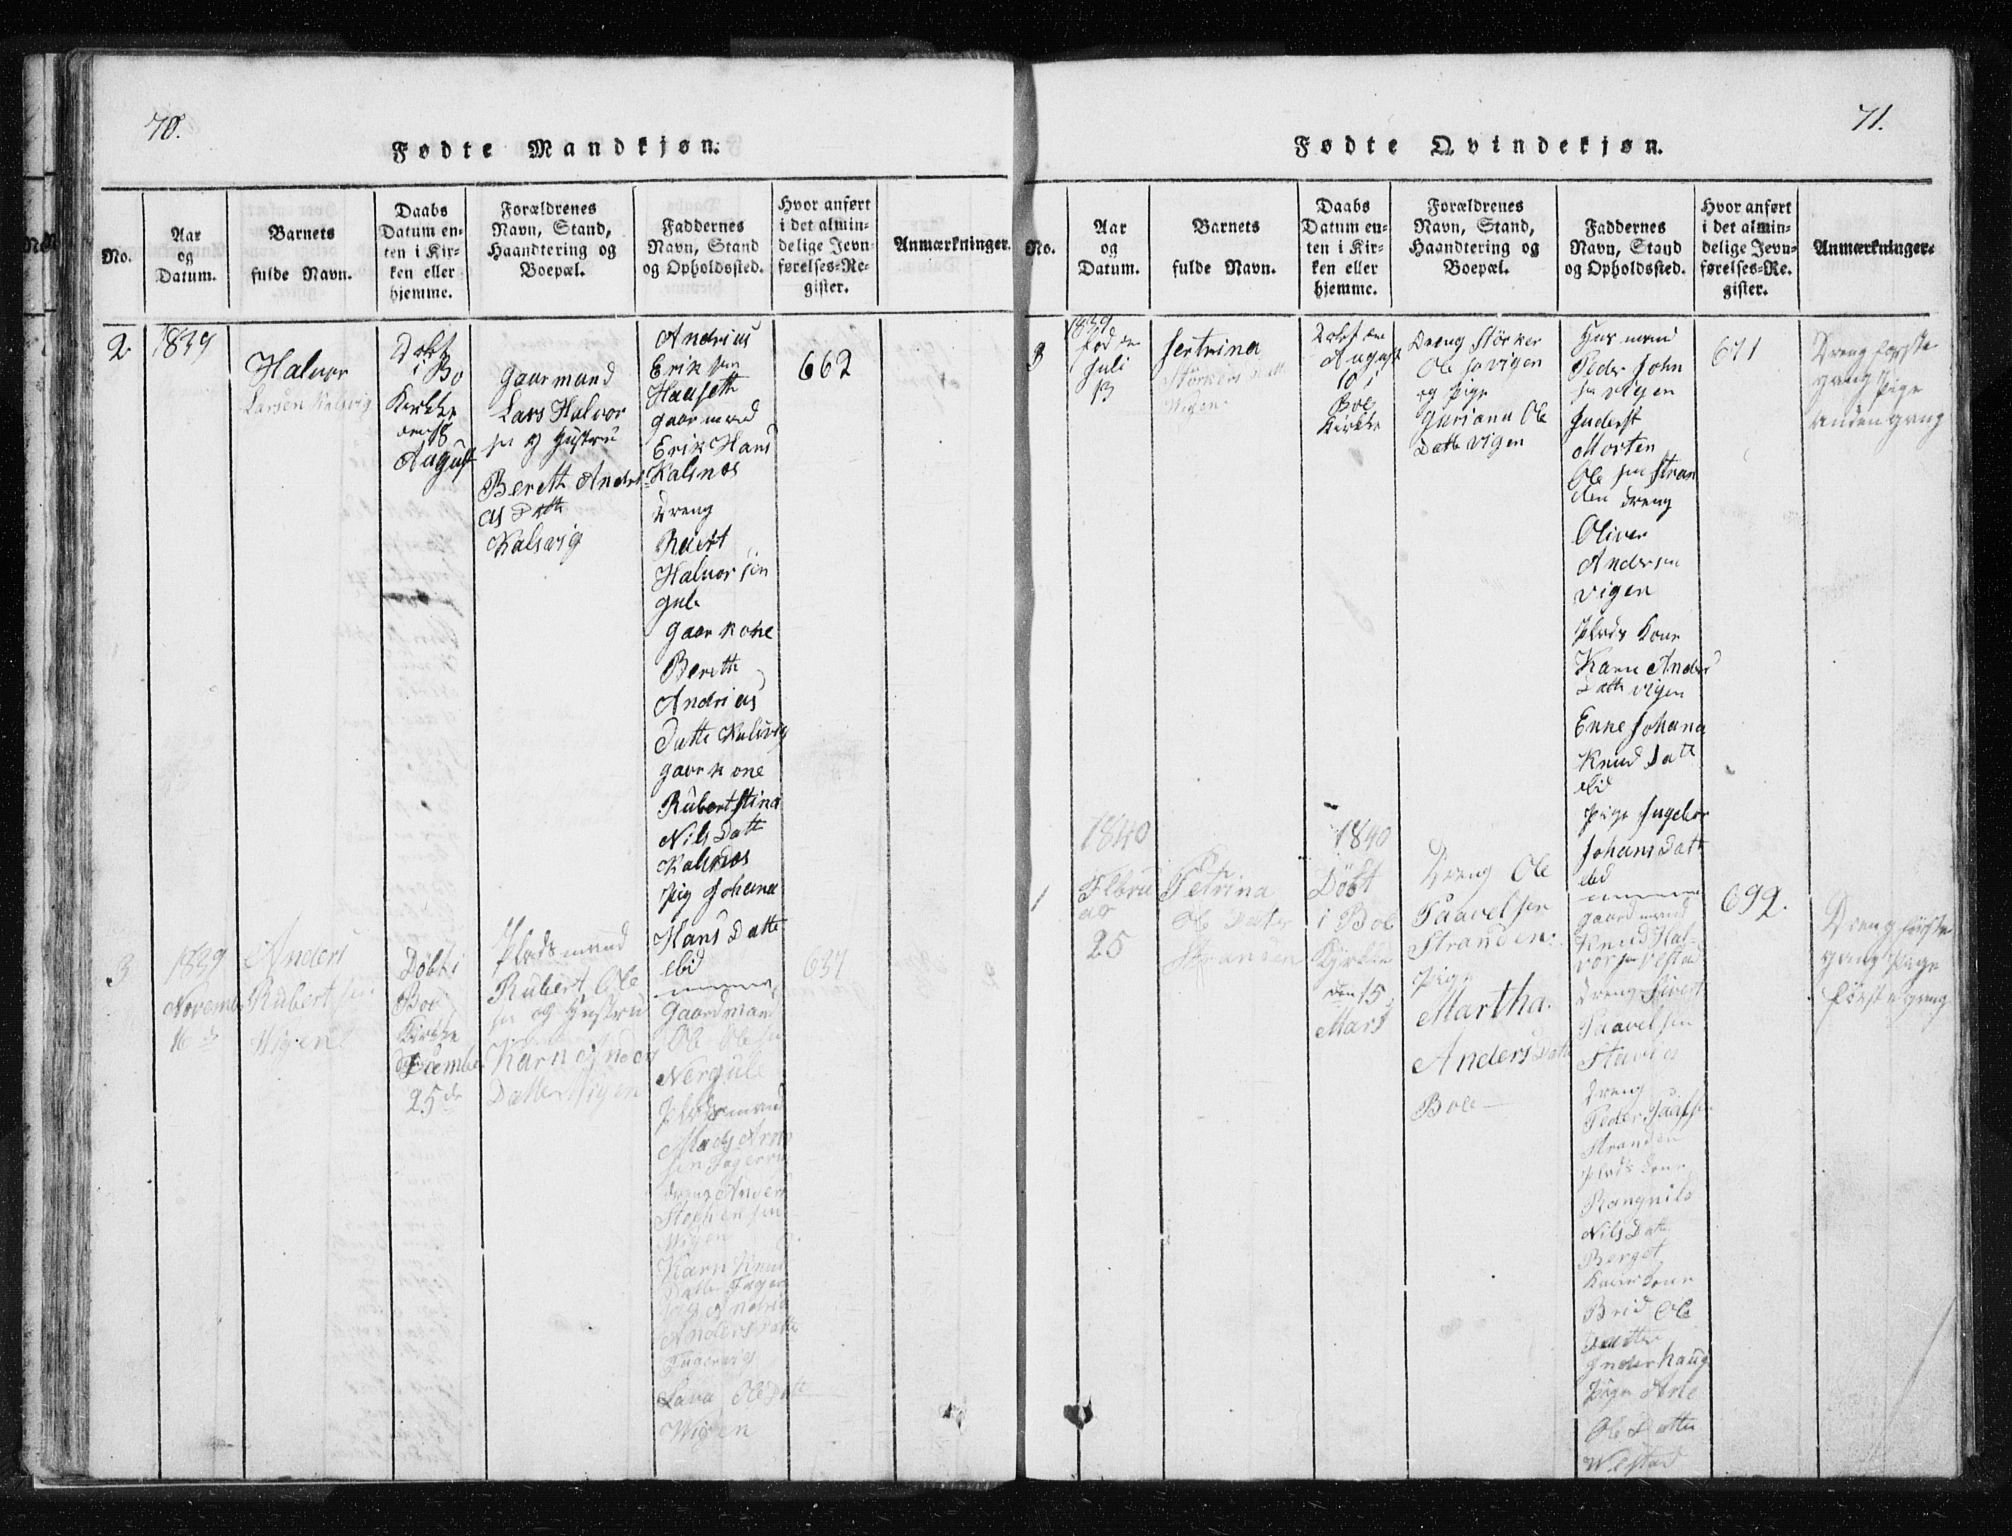 70.
Fødte Mandkjøn.
No.
Aar
og
Datum.
Barnets
fulde Navn.
Daabs
Datum en-
ten i Kir-
ken eller
hjemme.
Forældrenes
Navn, Stand,
Haandtering og
Boepæl.
Faddernes
Navn, Stand
og Opholdssted.
Hvor anført
i det almin-
delige Jevn-
førelses-Re-
gister.
Anmærkninger.
2
1839
Halvor
Larsen Kalsvig
Døbt
i Bo
Kirkke
August
Gaarmand
Lars Halvor
sen og Hustru
Bereth Andri
as Datte
Kalsvig
Andrias
Erik sen
Hauseth
gaarmand
Erik Hans
Kalsnæs
Dreng
Halvor sen
Gule
gaar kone
Bereth
Andrias
Datte Kalsvig
gaar kone
Rubertstina
Nils Datt
Kalsnæs
Pig Johana
Hans Datte
ibid
662
3
1839
November
16de
Anders
Rubert sen
Wigen
Døbt i
Boe
Kirkke
December
25de
Pladsmand
Rubert Ole
sen og Hustru
Karn Andes
Datter Wigen
Gaardmand
Ole Ole sen
Nergule
Pladsmand
Mads Arn
sen Fagervi
dreng Anders
Stephen sen
Wigen
Karn Knud
Datter Fager
Anders Datte
Fagervig
Lava Ole Datt
Wigen
637
71.
Fødte Qvindekjøn.
No.
Aar
og
Datum.
Barnets
fulde Navn.
Daabs
Datum en-
ten i Kir-
ken eller
hjemme.
Forældrenes
Navn, Stand,
Haandtering og
Boepæl.
Faddernes
Navn, Stand
og Opholdssted.
Hvor anført
i det almin-
delige Jevn-
førelses-Re-
gister.
Anmærkninger.
3
1839
fød den
Juli
13
Sertrina
Størkers Datt
Wigen
Døbt den
August
10 i
Boe
Kirkke
Dreng Størker
Ole sen vigen
og Pige
Guriana Ole
Datte vigen
Husmand
Peder John
sen vigen
Inderst
Morten
Ole sen Stran
den Dreng
Oliver
Andersen
vigen
Plads Kone
Karn Anders
Datte vigen
Enne Johana
Knud Datt
ibid
Pige Ingebor
Johans Datt
ibid
671
Dreng første
gang Pige
anden gang
1
1840
Februar
25
Petrina
Ole Datter
Stranden
1840
Døbt
i Boe
Kirkke
den 15
Mars
Dreng Ole
Paavel sen
Stranden
Pige
Martha
Anders Datte
Boe
gaardmand
Knud Hal-
vor sen Vestad
Dreng Sivert
Paavel sen
Dreng
Peder Paulsen
Stranden
Plads Kone
Rangnild
Nils Datte
Berget
Brid Ole
Datter
Inderhaug
Pige Ane
Ole Datter
Westad
692.
Dreng første
gang Pige
første gang